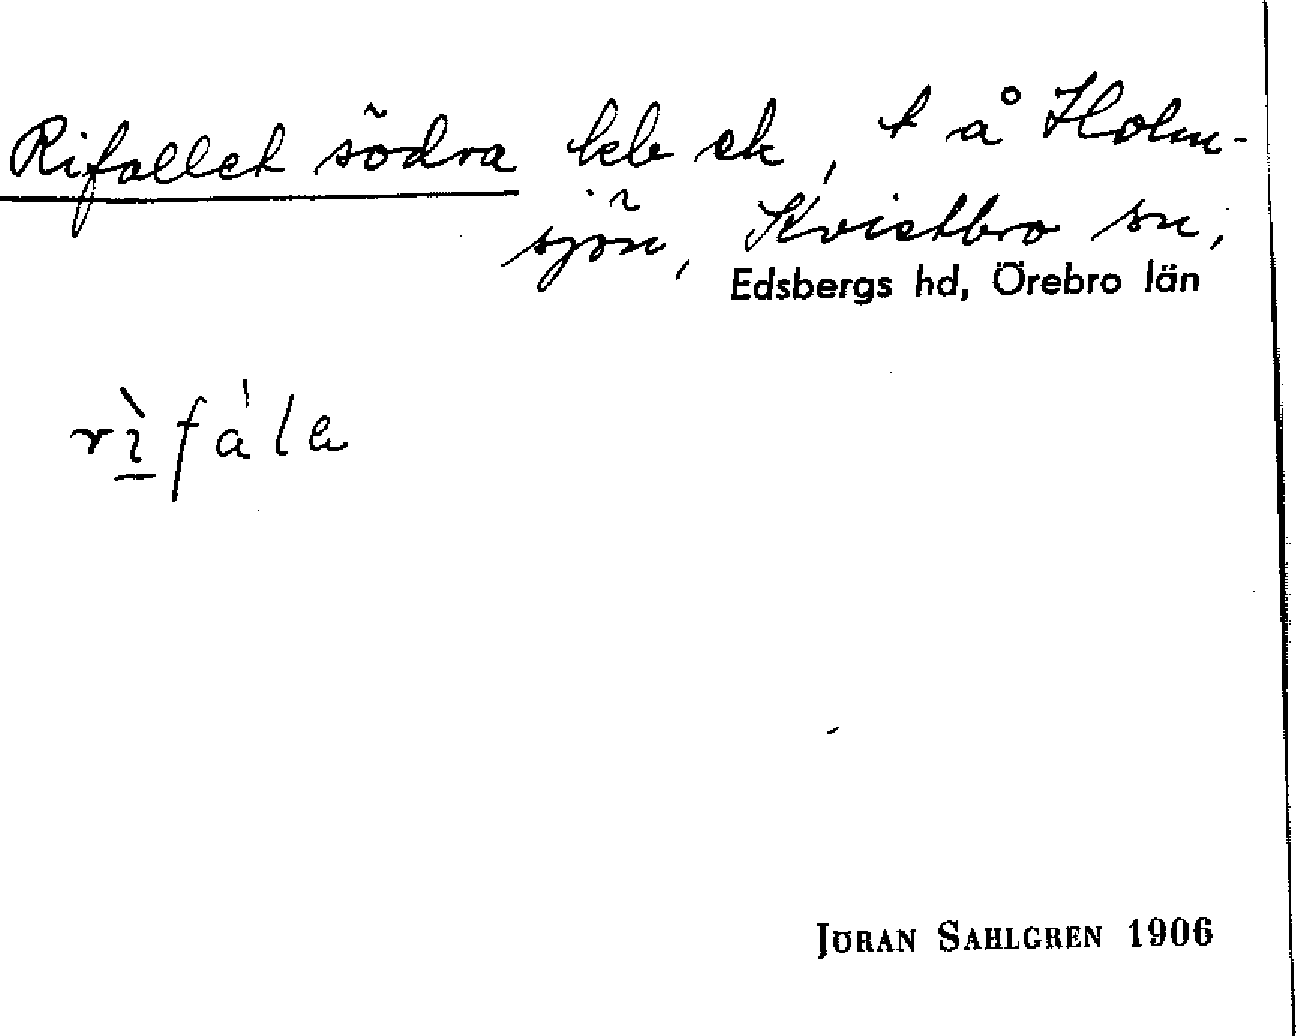 Rifallet södra beb ek, t å Holm-
sjön, Kvistbro sn,
Edsbergs hd, Örebro län
rìfàla
JÖRAN SAHLGREN 1906